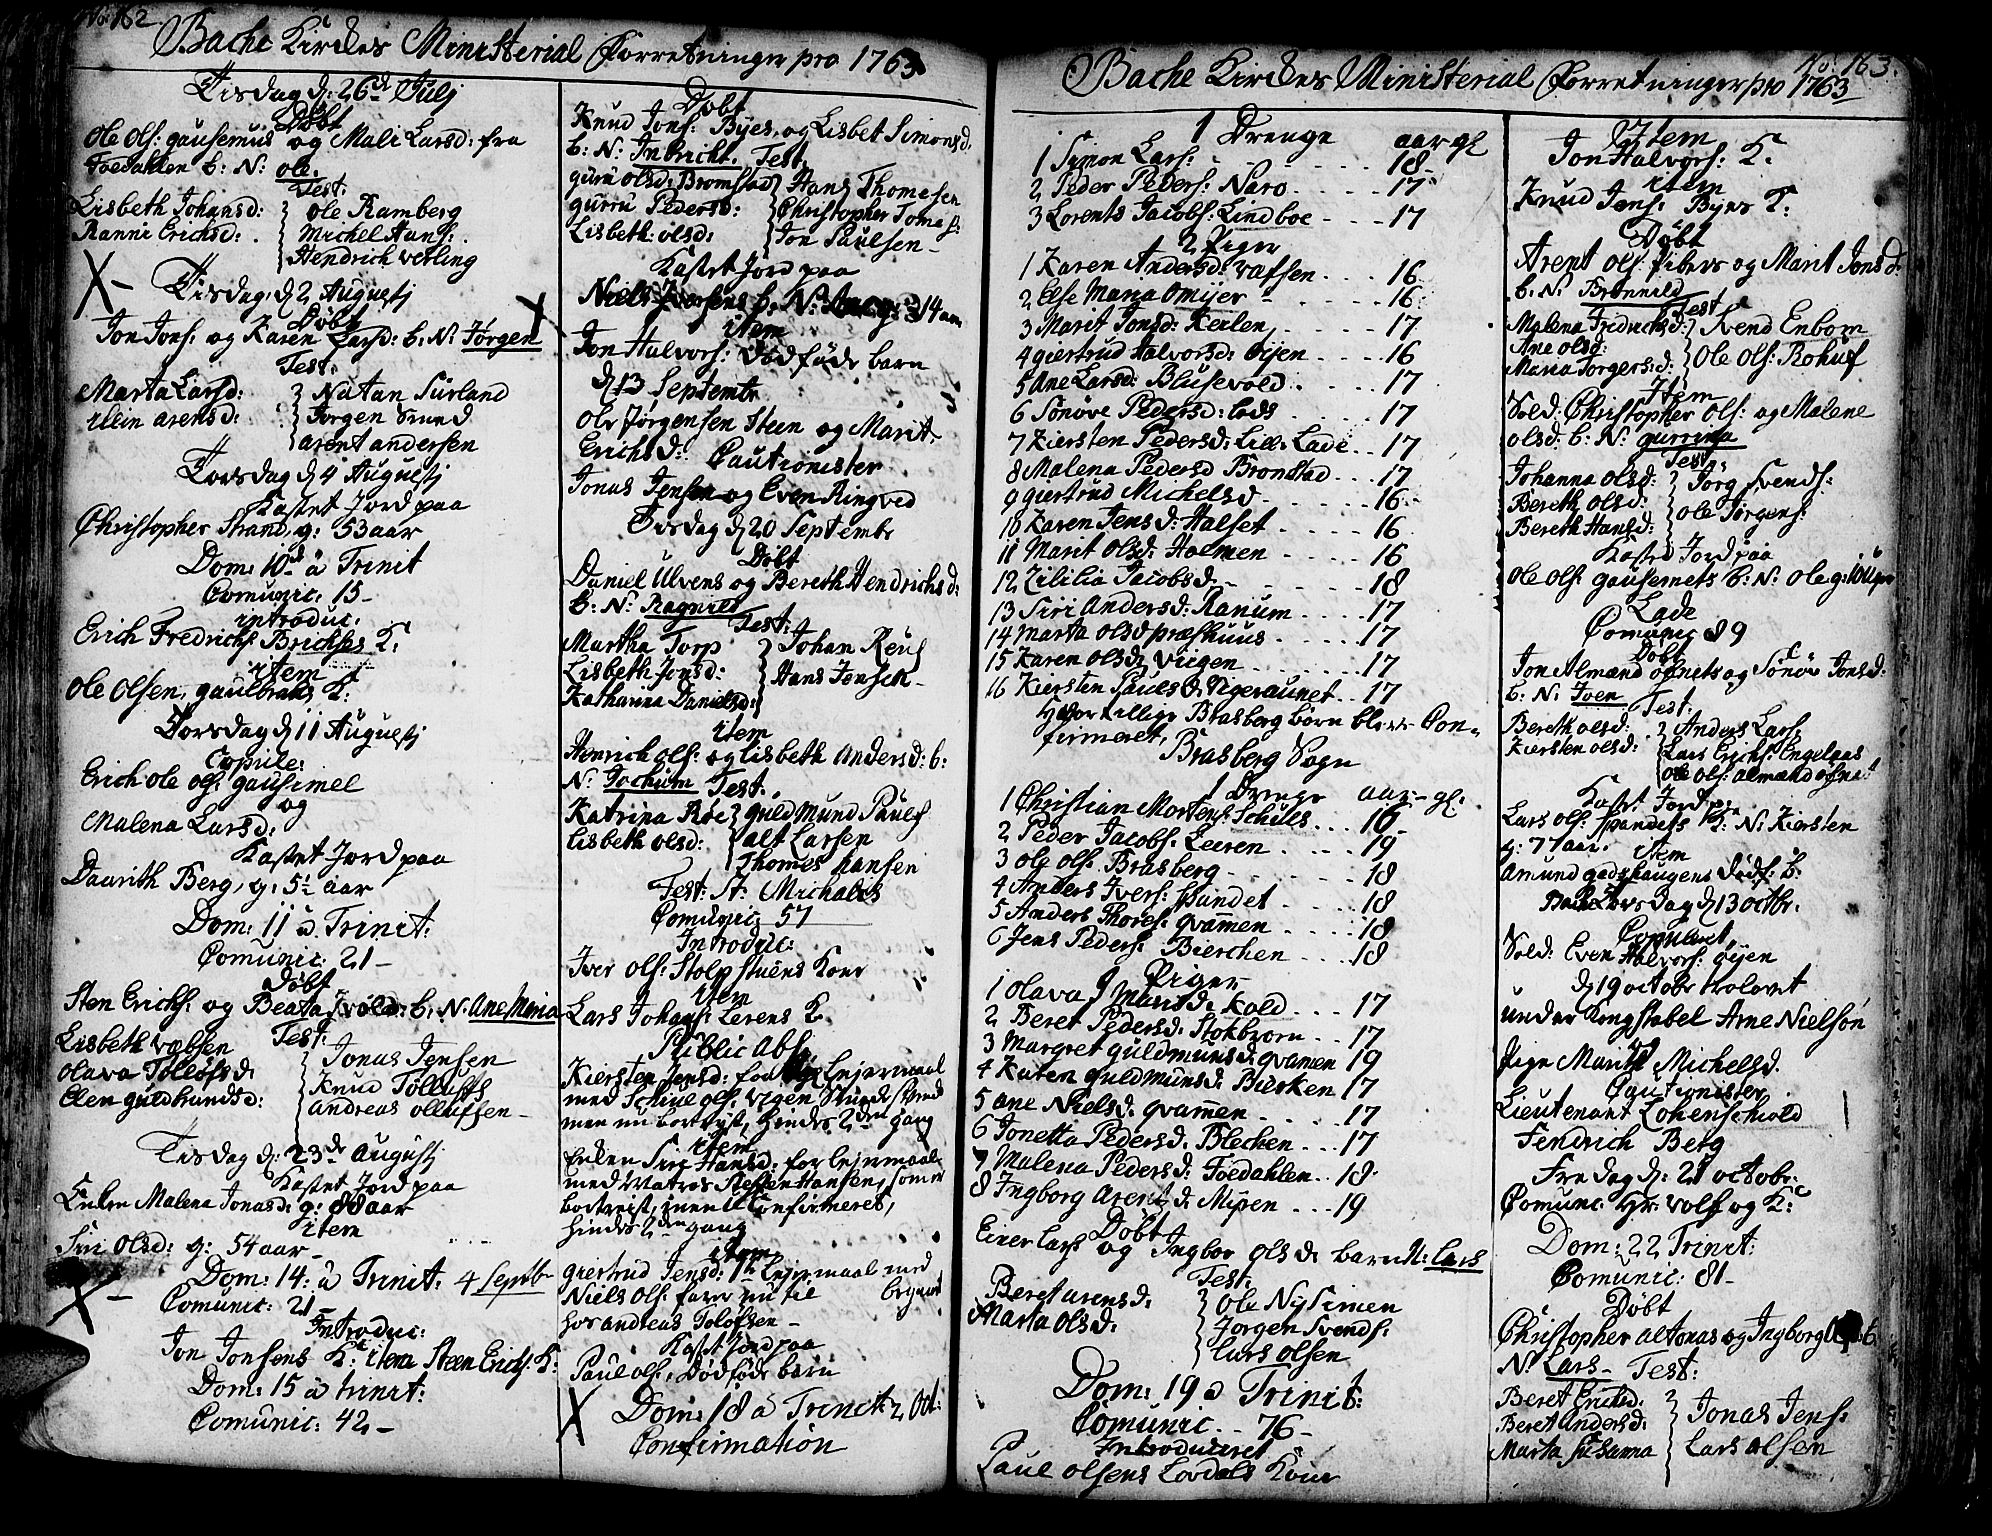 No: 162.
Bache Kirckes Ministerial Forretninger pro 1763
Tisdag d: 26de Julj
Døbt
Ole Ols: gausemus og Mali Larsd: fra
Foedahlen b: N: Ole.
Test:
Lisbeth Johansd: Ole Ramberg
Ranni Erichsd: Michel Hans:
Hendrich verling
Tisdag, d 2 Augustj
Døbt
Jon Jons: og Karen Larsd: b: N: Jørgen
Test:
Marta Larsd: Natan Surland
Elin arensd: Jørgen Smed
arent andersen
Torsdag d 4 Augustj
Kastet Jord paa
Christopher Strand, g: 53 aar
Dom: 10de à Trinit
Comunic: 15-
introduc:
Erich Fredrichs Brichses K:
item
Ole Olsen, gaulbrats K:
Torsdag d 11 Augustj
Copule:
Erich ole ols: gausimel
og
Malena Larsd:
Kastet Jord paa
Daarith Berg, g: 51 aar
Dom: 11 à Trinit:
Comunic: 21-
Døbt
Sten Erichs: og Beata b: N: Ane Maria
Test:
Lisbeth væbsen Jonas Jensen
olava Tollofsd Knud Tollufs
Elen guldbrundsd: Andreas olluffsen-
Tisdag d: 23de Augustj
Kastet Jord paa
Enken Malena Jonasd: g: 88 aar
item
Siri Olsd: g: 54 aar-
Dom: 14: à Trinit: 4 Septb-
Comunic: 21-
Introduc:
Jon Jonsens K: item Steen Erichs: K:
Dom: 15 à trinit:
Comunic: 42-
Døbt
Knud Jons: Byes, og Lisbet Simonsd:
b: N: Test:
guru olsd: Bromstad Hans Thomesen
gurru Pedersd: Christopher Tomas:
Lisbeth: olsd: Jon Paulsen-
Kastet Jord paa
Niels b: N: 14
item
Jon Halvors: dødføde barn
d 13 Septembr
Ole Jørgensen Steen og Marit
Erichsd: Cautionister
Jonas Jensen og Even Ringved
Tisdag d 20 Septembr
Døbt
Daniel Ulvens og Bereth Hendrichsd:
b: N: Ragnild
Test:
Martha Torp Johan Reus
Lisbeth Jonsd: Hans Jensen-
Katharina Danielsd:
item
Henrich ols: og Lisbeth Andersd: b:
N: Jochum Test:
Katrina Roe guldmund Pauls
Lisbeth olsd: alt Larsen
Thomes hansen
Fest: St: Michaelis
Comunic: 57
Introduc:
Iver Ols: Stolpstuens Kone
item
Lars Johans: Lerens K
Public Abs:
Kiersten Jensd: for Lejermaal
med ols: vigen
men nu bortrejst, hindes 2den gang
item
Enken Siri Hansd: for Lejermaal
med Matros Steffen Hansen, som er
bortrejst, men Confirmeret,
hindes 2den gang
item
giertrud Jensd: 1te Lejermaal med
Niels Ols: nu til
hos andreas Tolofsen-
Kastet Jord paa
Paul ols: Dødføde barn
Dom: 18 à Trinit: 2 Oct:
Confirmation
No: 163.
Bache Kirckes Ministerial Forretninger pro 1763
1 Drenge aar gl
1 Symon Lars: 18
2 Peder Peders: Naro 17
3 Lorents Jacobs: Lindboe 17
2 Piger
1 Karen Andersd: vassen 16
2 Else Maria Omijer 16
3 Marit Jonsd: Kerlen 17
4 giertrud Halvorsd: Øijen 16
5 Ane Larsd: Blusevold 17
6 Sønøve Pedersd: Lade 17
7 Kiersten Pedersd: Lille Lade 17
8 Malena Pedersd Bromstad 17
9 giertrud Michelsd 16
10 Karen Jensd: Halset 16
11 Marit Olsd: Holmen 16
12 Zililia Jacobsd 18
13 Siri Andersd: Ranum 17
14 marta olsd præsthuus 17
15 Karen olsd vigen 17
16 Kiersten Paulsd Digeraunet 17
Hvor tillige Brasberg børn blev Con-
firmeret,
Brasberg Sogn
1 Drenge aar gl:
1 Christian Mortens: Schuls 16
2 Peder Jacobs: Leeren 19
3 ole ols: Brasberg 18
4 Anders Ivers: spundet 18
5 Anders Thores: gvammen 18
6 Jens Peders: Bierchen 18
Piger
1 olava Marisd: kold 17
2 Beret Pedersd: Stokbzorn 17
3 Margret guldmunsd: gvamen 19
4 Karen guldmunsd Biercken 17
5 ane Nielsd: gvammen 17
6 Jonetta Pedersd: Blechen 17
7 Malena Pedersd: Foedahlen 18
8 Ingborg Arentsd: Mipen 19
Døbt
Einer Lars og Ingbor Olsd: barn N: Lars
Test:
Beret arensd: Ole Nysimen
Marta Olsd: Jørgen Svends:
Lars olsen
Dom: 19 à Trinit:
Comunic 76-
Introduceret
Paul Olsens Lovdals Kone
Item
Jon Halvors: K:
item
Knud Jens: Byes K:
Døbt
Arent Ols: og Marit Jonsd:
b: N: Brønnild
Test
Malena Fredrichsd: Svend Enbom
Ane olsd: Ole Ols: Rohus
Maria Jørgersd:
Item
Sold: Christopher Ols: og Malene
Olsd: b: N: gurrina
Test:
Johanna olsd: Jørg Svends:
Bereth Olsd: Ole Jørgens:
Bereth Hansd:
Kasted Jord paa
Ole Ols: gausemels b: N: Ole g:
Lade
Comunic 89
Døbt
Jon Almand og Sønøv Jonsd:
b: N: Iven Test:
Bereth olsd: Anders Lars
Kiersten olsd: Lars Erichs: Engelsaas
Ole Ols:
Kastet Jord paa
Lars ols: K: N: Kiersten
g: 77 aar: item
Amund gadshaugens Dødf: b:
Torsdag d 13 octbr:
Copuleret
Sold: Even Halvors: øijen
d 19 octobr trolovet
under Konstabel Arne Nielsøn
Pige Marit Michelsd.
Cautionister
Lieutenant Lohenschiold
Fendrich Berg
Fredag d: 21 octobr:
Comunic Hr: volf og K:
Dom: 22 Trinit:
Comunic: 81-
Døbt
Christopher als Jonas og Ingborg b:
N: Lars- Test:
Beret Erichsd: Jonas Jens:
Beret Andersd: Lars Olsen
Marta Susanna